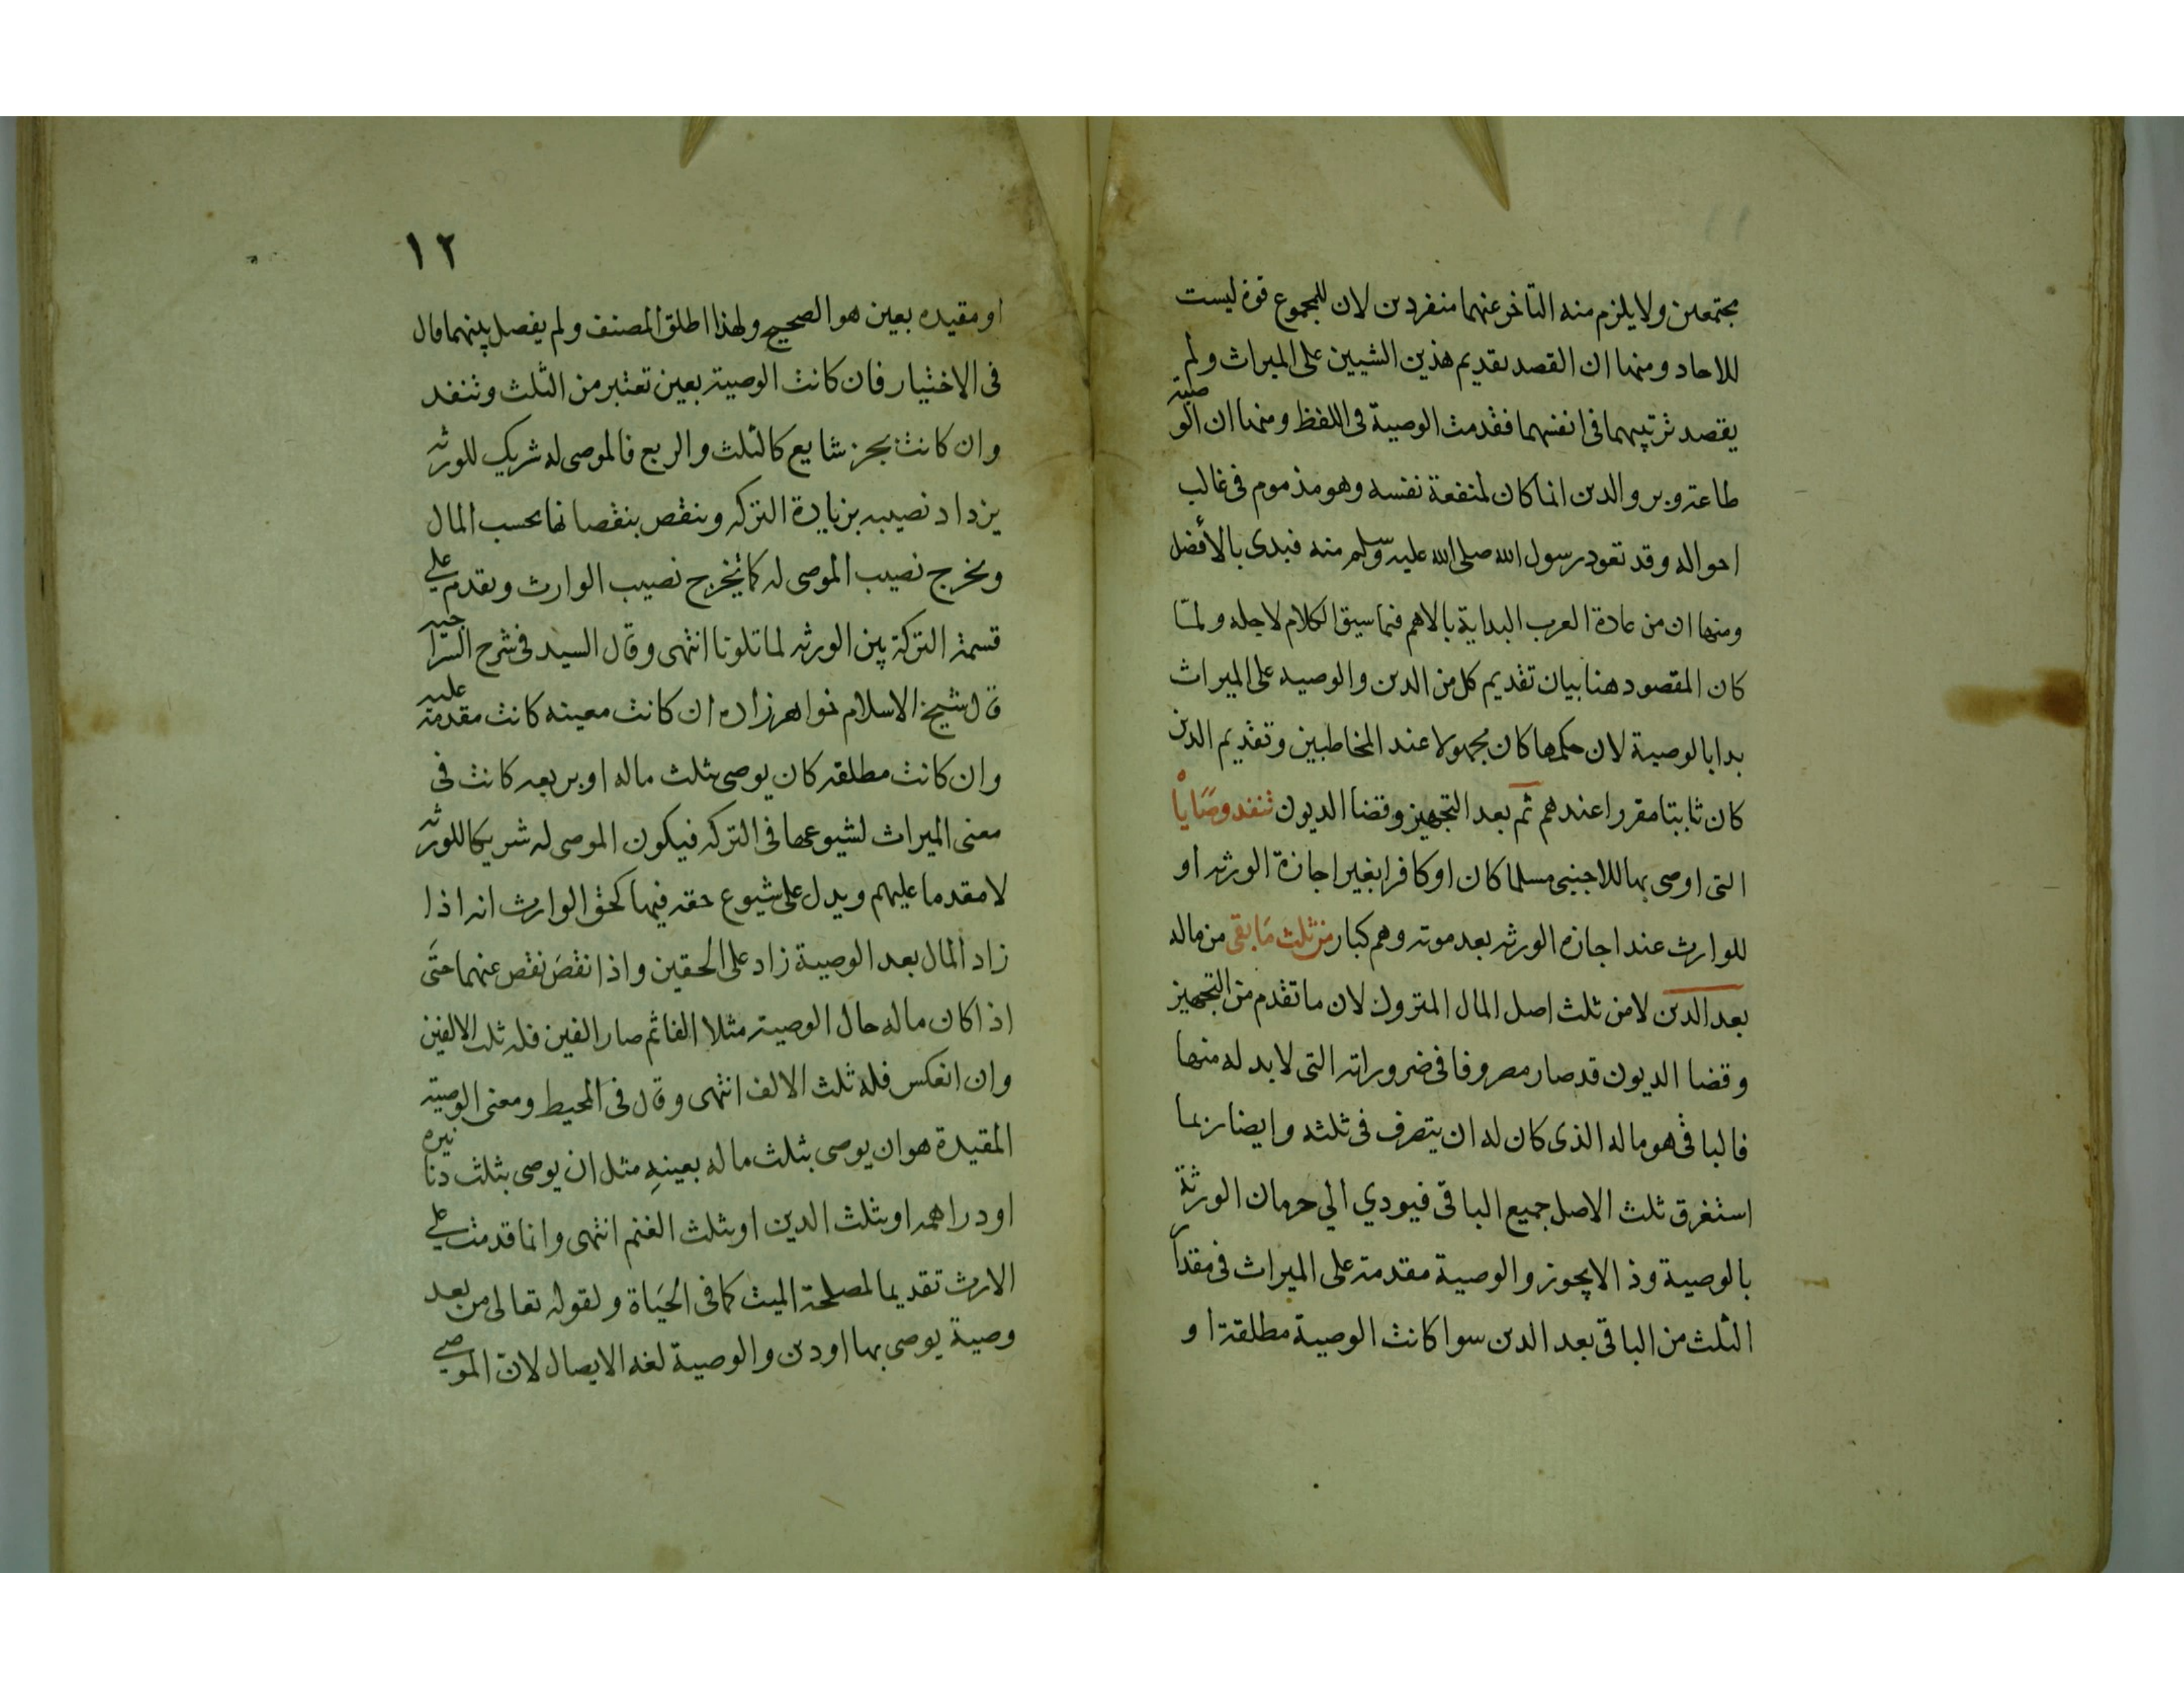 مجتمعين ولا يلزم منه التاخر عنهما منفردين لان للمجموع قوة ليست
للاحاد ومنها ان القصد تقديم هذين الشيين على الميراث ولم
يقصد ترتيبهما فى انفسهما فقدمت الوصية فى اللفظ ومنها ان الوصية
طاعة وبر والدين انما كان لمنفعة نفسه وهو مذموم فى غالب
احواله وقد تعوذ رسول الله صلى الله عليه وسلم منه فبدى بالأفضل
ومنها ان من عادة العرب البداية بالاهم فيما سيق الكلام لاجله ولمّا
كان المقصود هنا بيان تقديم كل من الدين والوصيه على الميراث
بدا بالوصية لان حكمها كان مجهولا عند المخاطبين وتقديم الدين
كان ثابتا مقررا عندهم ثم بعد التجهيز وقضا الديون تنفد وصَايَاْ
التى اوصى بها للاجنبى مسلما كان او كافرا بغير اجازة الورثه او
للوارث عند اجازه الورثه بعد موته وهم كبار من ثلث مَا بقى من ماله
بعد الدين لا من ثلث اصل المال المتروك لان ما تقدم من التجهيز
وقضا الديون قد صار مصروفا فى ضروراته التى لابد له منها
فالباقى هو ماله الذى كان له ان يتصرف فى ثلثه وايضا ربما
استغرق ثلث الاصل جميع الباقى فيودي الي حرمان الورثة
بالوصية وذا لايجوز والوصية مقدمة على الميراث فى مقدار
الثلث من الباقى بعد الدين سوا كانت الوصية مطلقة او
١٢
او مقيده بعين هو الصحيح ولهذا اطلق المصنف ولم يفصل بينهما قال
فى الاختيار فان كانت الوصية بعين تعتبر من الثلث وتنفد
وان كانت بجزء شايع كالثلث والربع فالموصى له شريك للورثه
يزداد نصيبه بزيادة التركه وينقص بنقصانها بحسب المال
ويخرج نصيب الموصى له كما يخرج نصيب الوارث ويقدم على
قسمة التركة بين الورثه لما تلونا انتهى وقال السيد فى شرح السراجيه
قال شيخ الاسلام خواهرزاده ان كانت معينه كانت مقدمة عليه
وان كانت مطلقة كان يوصى بثلث ماله او بربعه كانت فى
معنى الميراث لشيوعها فى التركه فيكون الموصى له شريكا للورثه
لا مقدما عليهم ويدل على شيوع حقه فيها كحق الوارث انه اذا
زاد المال بعد الوصية زاد على الحقين واذا نقصَ نقص عنهما حتَى
اذا كان ماله حال الوصية مثلا الفا ثم صار الفين فله ثلث الالفين
وان انعكس فله ثلث الالف انتهى وقال فى المحيط ومعنى الوصية
المقيدة هو ان يوصى بثلث ماله بعينهِ مثل ان يوصى بثلث دنانيره
او دراهمه او بثلث الدين او بثلث الغنم انتهى وانما قدمت على
الارث تقديما لمصلحة الميت كما فى الحيَاة ولقوله تعالى من بعد
وصية يوصى بها او دين والوصية لغه الايصال لان الموصى